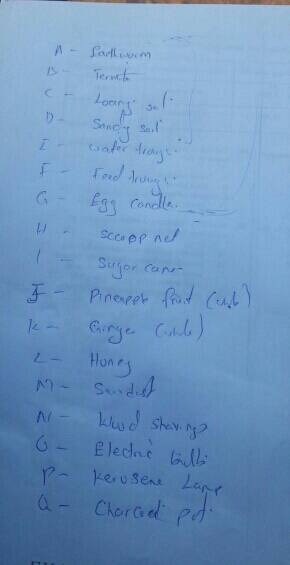 A - Earthworm
B - Termite
C - Loamy soil
D - Sandy soil
E - water trough
F - Feed trough
G - Egg candle
H - scoop net
I - Sugar cane
J - Pineapple fruit (whole)
K - Ginger (whole)
L - Honey
M - Sawdust
N - Wood shavings
O - Electric bulb
P - Kerosene Lamp
Q - Charcoal pot